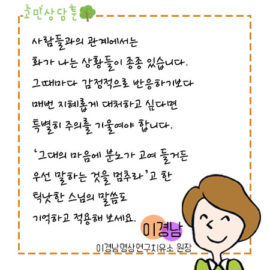 고민상담톡
사람들과의 관계에서는
화가 나는 상황들이 종종 있습니다.
그때마다 감정적으로 반응하기보다
매번 지혜롭게 대처하고 싶다면
특별히 주의를 기울여야 합니다.
'그대의 마음에 분노가 고여 들거든
우선 말하는 것을 멈추라'고 한
틱낫한 스님의 말씀도
기억하고 적용해 보세요.
이경남
이경남명상연구치유소 원장